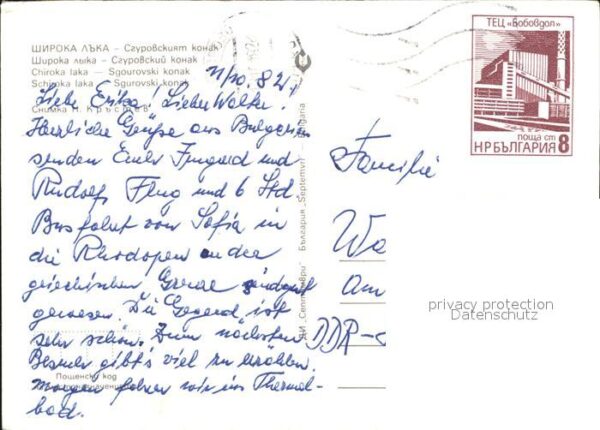 ШИРОКА ЛЪКА – Сгуровският конак
Широка лыка – Сгуровский конак
Chiroka laka — Sgourovski konak
Schiroka laka — Sgourovski konak
Снимка Н. Кръстев
82
Liebe Erika! Lieber Walter!
Herzliche Grüße aus Bulgarien
senden Euch Irmgard und
Rudolf. Flug und 6 Std.
Busfahrt von Sofia in
die Rhodopen an der
griechischen Grenze sind gut
gewesen. Die Gegend ist
sehr schön. Zum nächsten
Besuch gibt's viel zu erzählen.
Morgen fahren wir ins Thermal-
bad.
Пощенски код
ДИ „Септември" България "Septemvri" Bulgaria
ТЕЦ „Бобовдол"
поща ст
НР БЪЛГАРИЯ 8
Familie
Wa
Am
DDR-
privacy protection
Datenschutz